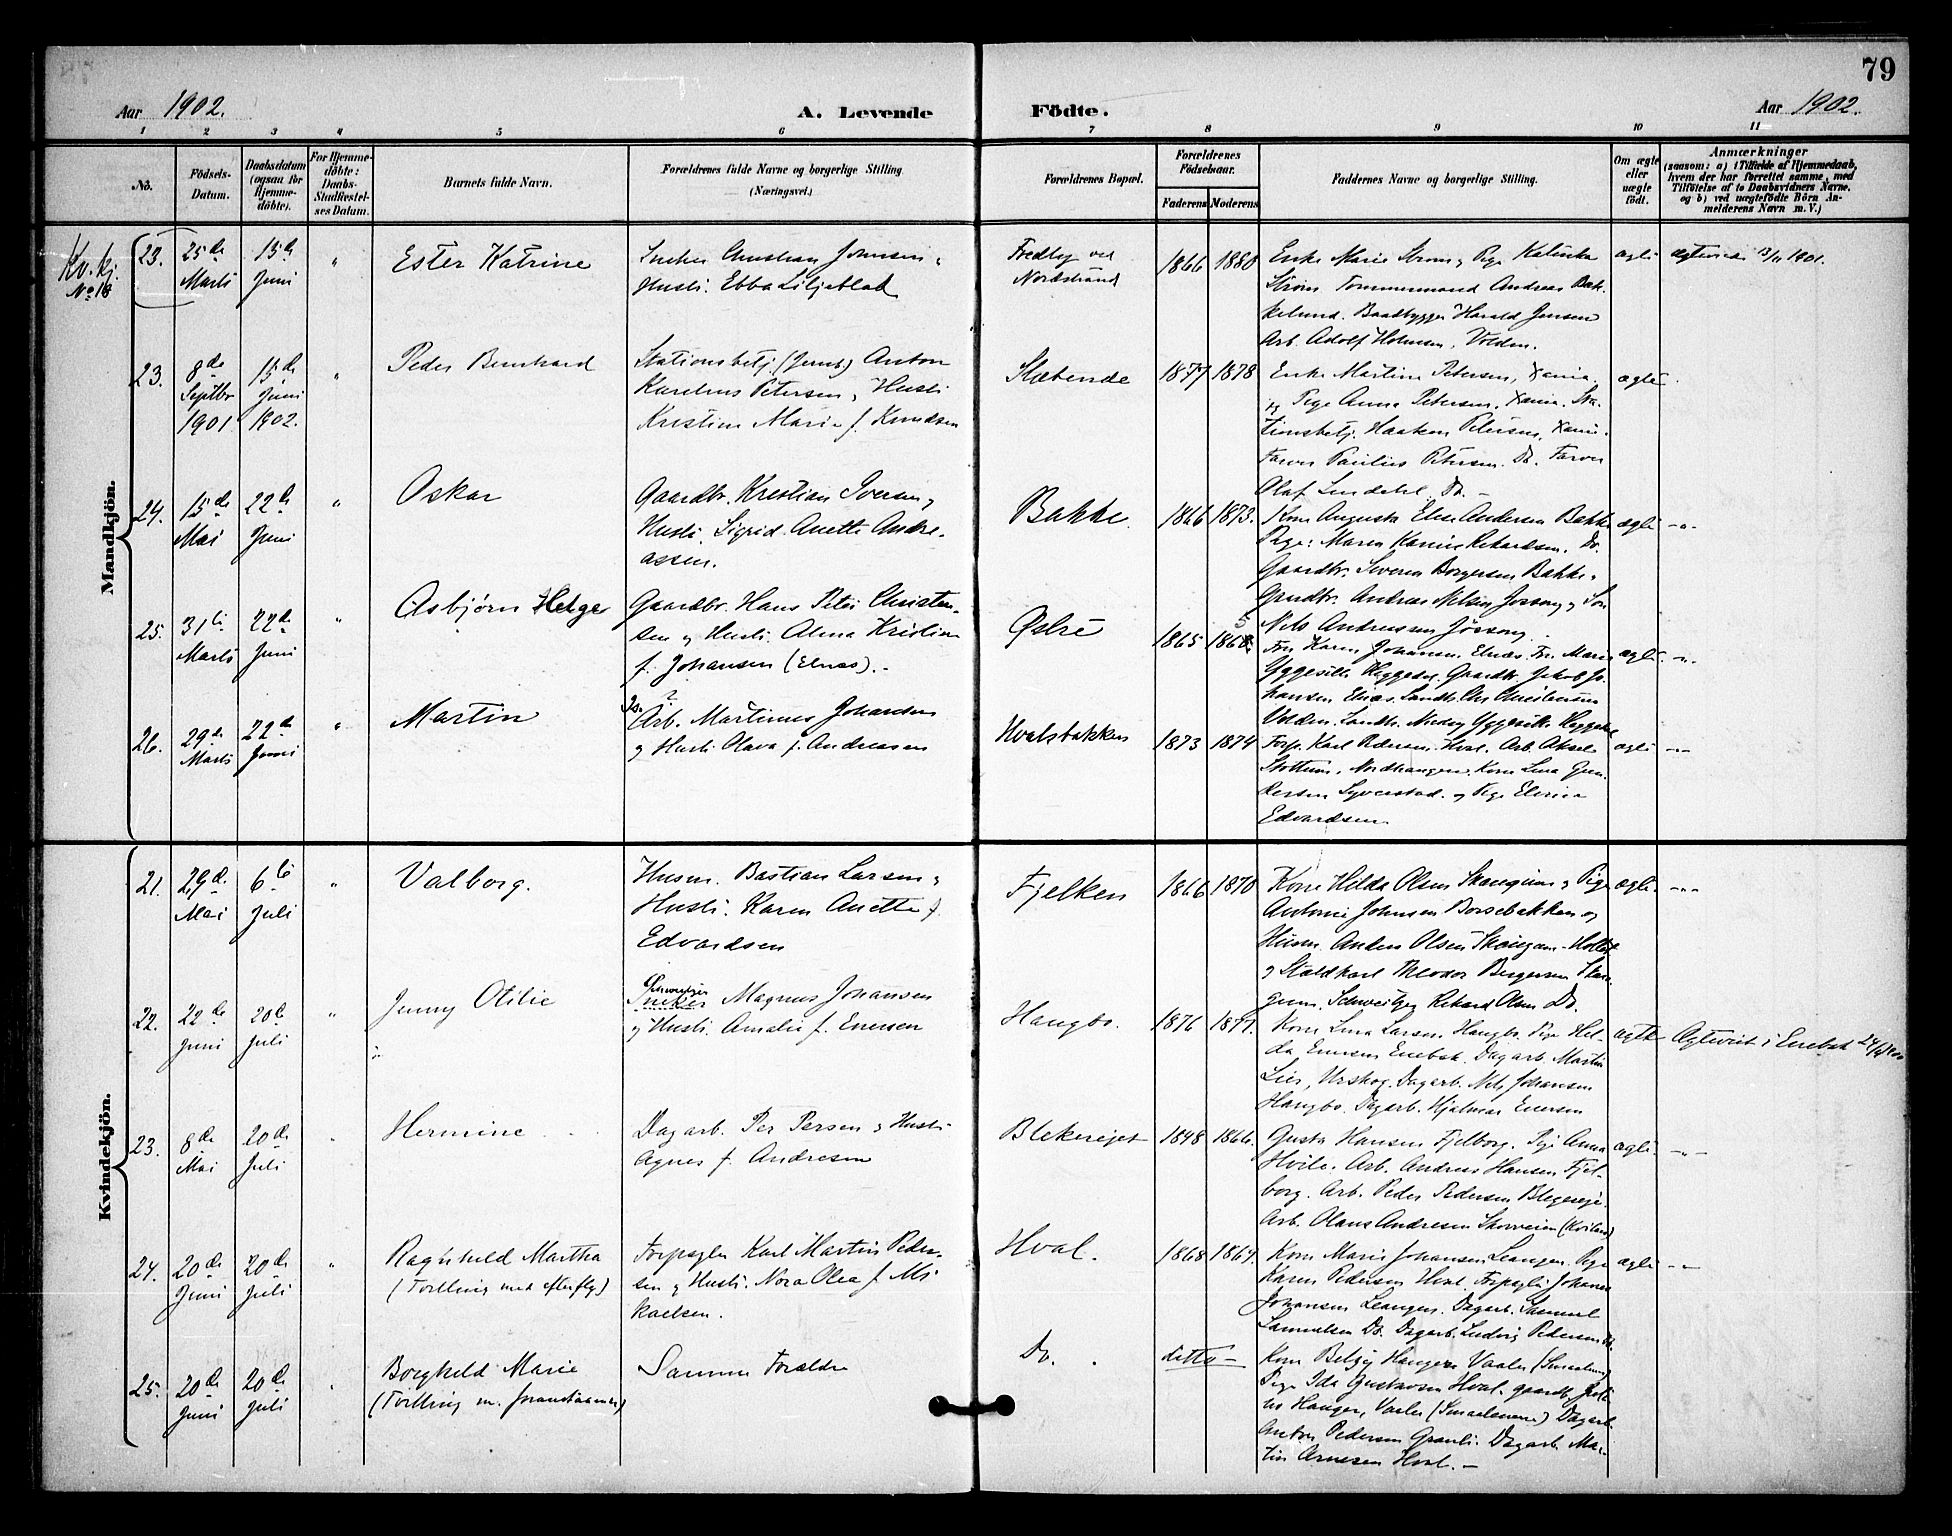 79
Aar 1902.
A. Levende Födte.
Aar 1902.
1 2 3 4 5 6 7 8 9 10 11
No.
Födsels-Datum.
Daabsdatum (ogsaa for Hjemme-döbte).
For Hjemme-döbte: Daabs-Stadfæstel-ses Datum.
Barnets fulde Navn.
Forældrenes fulde Navne og borgerlige Stilling
(Næringsvei.)
Forældrenes Bopæl.
Forældrenes Födselsaar.
Faderens Moderens
Faddernes Navne og borgerlige Stilling.
Om ægte eller uægte födt.
Anmærkninger
(saasom: a) i Tilfælde af Hjemmedaab,
hvem der har forrettet samme, med
Tilföielse af to Daabsvidners Navne.
og b) ved uægtefödte Börn An-
melderens Navn m. V.)
Mandkjön.
Kv. kj.
No 18
23. 25de Marts 15de Juni " Ester Katrine
Christian Johnsen,
Hustr. Ebba Liljeblad
Fredly ved
Nordstrand
1866 1880
Enke Marie Strøm, Pige Katinka
Strøm Tømmermand Andreas Bak-
kelund. Baadbygger Harald Jensen
Arb. Adolf Holmsen, Volden.
ægte
23. 8de Septbr 1901 15de Juni 1902. " Peder Bernhard
Stationsbetj. (Jernb) Anton
Karelius Petersen, Hustr.
Kristine Marie f. Knudsen
Slæbende
1877 1878
Enke Martine Petersen, Xania.
og Pige Anna Petersen, Xania. Sta-
tionsbetj. Haakon Petersen, Xania.
Farver Paulius Petersen. Do. Farver
Olaf Lindahl Do. —
ægte
24. 15de Mai 22de Juni " Oskar
Gaardbr. Kristian Iversen,
Hustr. Sigrid Anette Andre-
assen.
Bakke
1866 1873.
Kone Augusta Else Andersen Bakke
Pige: Maren Karine Rikardsen. Do.
Gaardbr. Severin Borgersen Bakke,
Gaardbr. Andreas Nilsen Jøssong, Søn
Nils Andreassen Jøssong.
ægte -"-
25. 31te Marts 22de Juni " Asbjørn Helge
Gaardbr. Hans Peter Christen-
sen og Hustr. Alma Kristine
f. Johansen (Elnæs). -
Østre
1865
Fru Karen Johansen Elnæs. Fru Marie
Yggeseth Heggedal. Gaardbr. Jakob Jo-
hansen Elnæs. Landh. Chr. Christensen
Volden. Landh. Yggeseth Heggedal
ægte -"-
26. 29de Marts 22de Juni " Martin
Arb. Martinus Johansen
og Hustr. Olava f. Andreasen
Hvalsbakken
1873 1874
Forp. Karl Pedersen Hval. Arb. Aksel
Slottum, Nordhaugen. Kone Lina Gun-
dersen Syverstad. og Pige Elvina
Edvardsen.
ægte -"-
Kvindekjön.
21. 29de Mai 6te Juli " Valborg.
Husm. Bastian Larsen,
Hustr. Karen Anette f.
Edvardsen
Fjelken
1866 1870
Kone Hilda Olsen Skaugum, Pige
Antonie Johnsen Borsebakken og
Husm. Anders Olsen Skaugum-
og Staldkarl Theodor Bergersen Skau-
gum. Schweitzer Rikard Olsen Do.
ægte. -"-
22. 22de Juni 20de Juli " Jenny Otilie
Magnus Johansen
og Hustr. Amalie f. Enersen
Haugbo.
1876 1877.
Kone Lina Larsen Haugbo. Pige Hil-
da Enersen Enebak. Dagarb. Martin
Lier, Urskog. Dagarb. Nils Johansen
Haugbo. Dagarb. Hjalmar Enersen
ægte Ægteviet i Enebak
23. 8de Mai 20de Juli " Hermine
Dagarb. Per Persen, Hustr.
Agnes f. Andresen
Blekerejet
1848 1866.
Gusta Hansen Fjelborg. Pige Anna
Hvile. Arb. Andreas Hansen Fjel-
borg. Arb. Peder Pedersen Blegereje.
Arb. Olaus Andresen Skovveien
ægte. -"-
24. 20de Juni 20de Juli " Raghnild Martha
(Tvilling med efterflg)
Forpagter Karl Martin Peder-
sen og Hustr. Nora Olea f. Mi-
kaelsen.
Hval.
1868 1867.
Kone Marie Johansen Leangen. Pige
Karen Pedersen Hval. Forpagter Johannes
Johansen Leangen. Dagarb. Samuel
Samuelsen Do. Dagarb. Ludvig Pedersen Do.
ægte -"-
25. 20de Juni 20de Juli " Borghild Marie
(Tvilling m. foranstaaende)
Samme Forældre
Do.
ditto —
Kone Betzy Haugen Vaaler (Smaalenene)
Pige Ida Gustavsen Hval. gaardb. Juli-
us Haugen, Vaaler (Smaalenene) Dagarb.
Anton Pedersen Granli. Dagarb. Mar-
tin Arnesen Hval. —